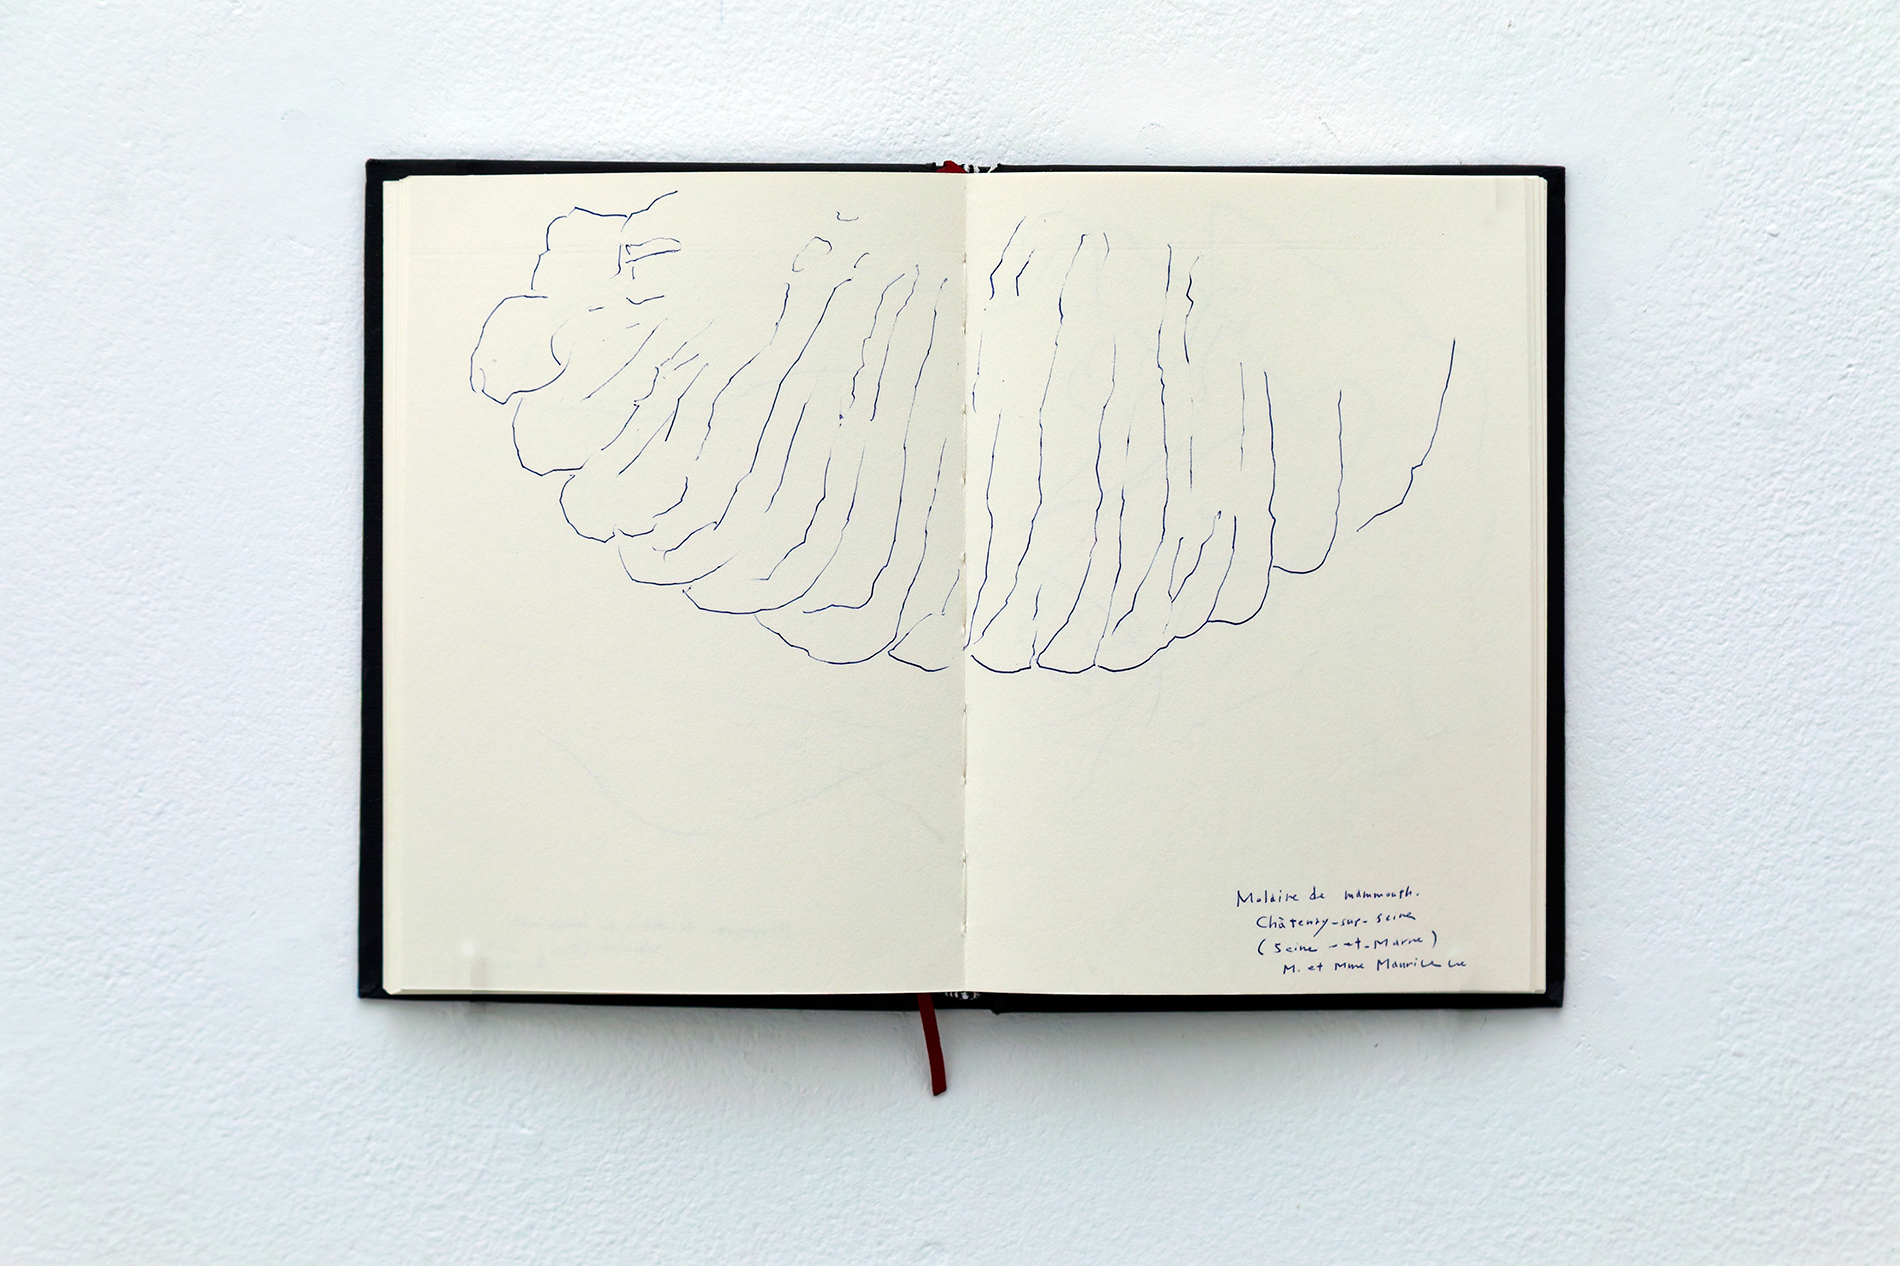 Molaire de mammouth.
Châtenay-sur-Seine
(Seine-et-Marne)
M. et Mme Maurice